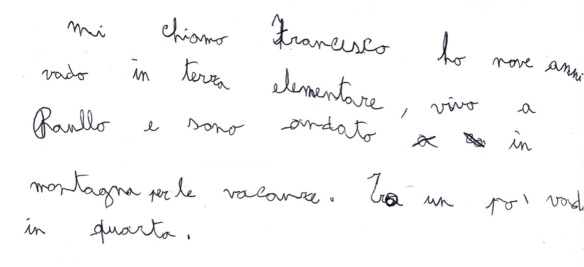 mi chiamo Francesco ho nove anni
vado in terza elementare, vivo a
Ranllo e sono andato a in
montagna per le vacanze. Tra un po' vado
in quarta.